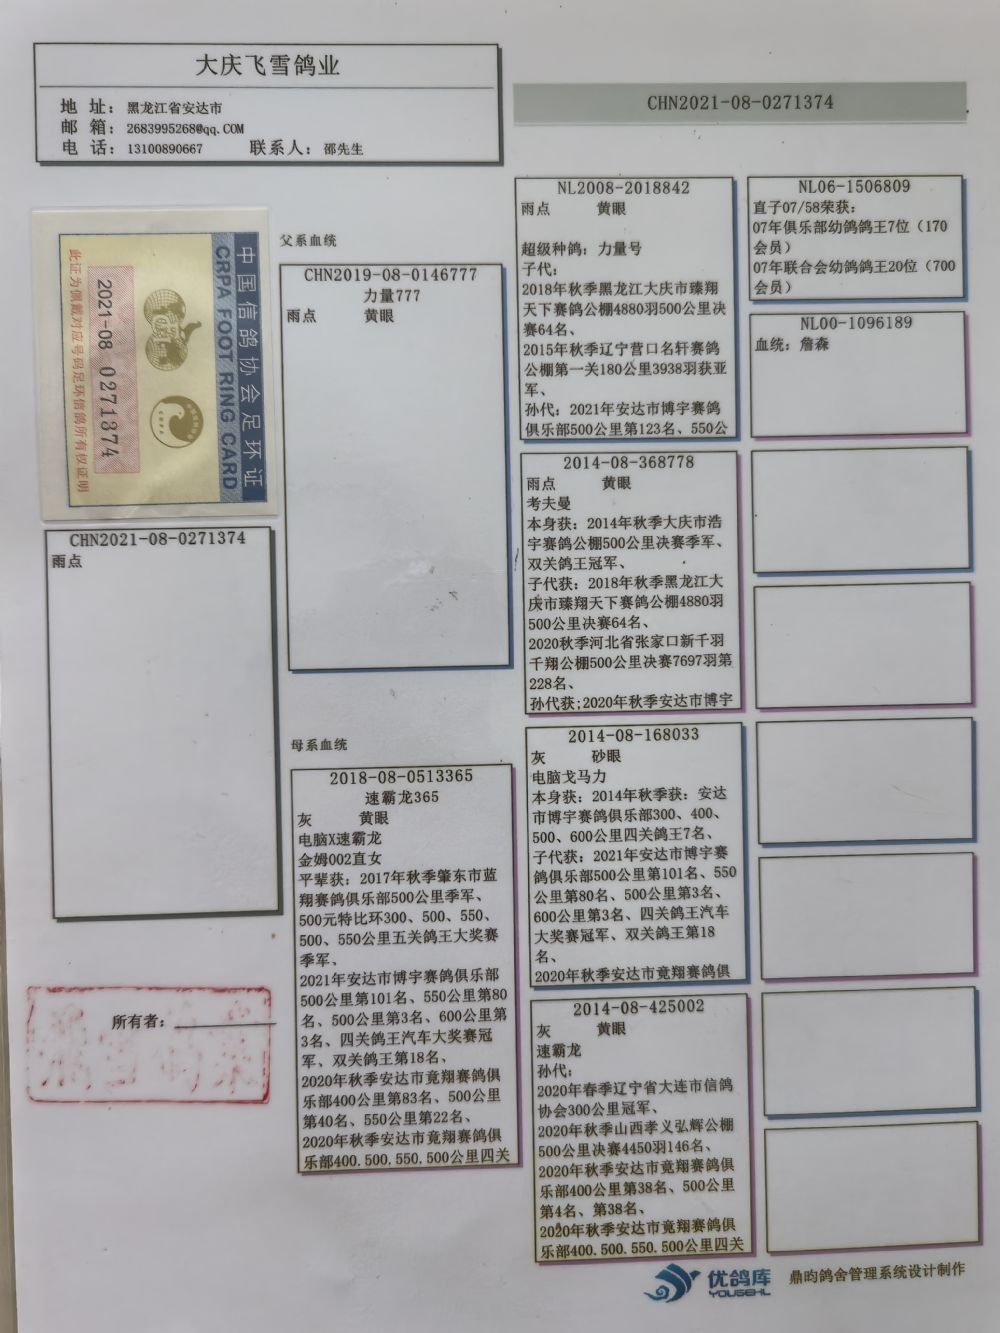 大庆飞雪鸽业
地 址： 黑龙江省安达市
邮 箱： 2683995268@qq.COM
电 话： 13100890667 联系人： 邵先生
CHN2021-08-0271374
中国信鸽协会足环证
CRPA FOOT RING CARD
2021-08 0271374
此证为佩戴对应号码足环信鸽所有权证明
CHN2021-08-0271374
雨点
所有者：
父系血统
CHN2019-08-0146777
力量777
雨点 黄眼
母系血统
2018-08-0513365
速霸龙365
灰 黄眼
电脑X速霸龙
金姆002直女
平辈获：2017年秋季肇东市蓝
翔赛鸽俱乐部500公里季军、
500元特比环300、500、550、
500、550公里五关鸽王大奖赛
季军、
2021年安达市博宇赛鸽俱乐部
500公里第101名、550公里第80
名、500公里第3名、600公里第
3名、四关鸽王汽车大奖赛冠
军、双关鸽王第18名、
2020年秋季安达市竟翔赛鸽俱
乐部400公里第83名、500公里
第40名、550公里第22名、
2020年秋季安达市竟翔赛鸽俱
乐部400.500.550.500公里四关
NL2008-2018842
雨点 黄眼
超级种鸽：力量号
子代：
2018年秋季黑龙江大庆市臻翔
天下赛鸽公棚4880羽500公里决
赛64名、
2015年秋季辽宁营口名轩赛鸽
公棚第一关180公里3938羽获亚
军、
孙代：2021年安达市博宇赛鸽
俱乐部500公里第123名、550公
2014-08-368778
雨点 黄眼
考夫曼
本身获：2014年秋季大庆市浩
宇赛鸽公棚500公里决赛季军、
双关鸽王冠军、
子代获：2018年秋季黑龙江大
庆市臻翔天下赛鸽公棚4880羽
500公里决赛64名、
2020秋季河北省张家口新千羽
千翔公棚500公里决赛7697羽第
228名、
孙代获;2020年秋季安达市博宇
2014-08-168033
灰 砂眼
电脑戈马力
本身获：2014年秋季获：安达
市博宇赛鸽俱乐部300、400、
500、600公里四关鸽王7名、
子代获：2021年安达市博宇赛
鸽俱乐部500公里第101名、550
公里第80名、500公里第3名、
600公里第3名、四关鸽王汽车
大奖赛冠军、双关鸽王第18
名、
2020年秋季安达市竟翔赛鸽俱
2014-08-425002
灰 黄眼
速霸龙
孙代：
2020年春季辽宁省大连市信鸽
协会300公里冠军、
2020年秋季山西孝义弘辉公棚
500公里决赛4450羽146名、
2020年秋季安达市竟翔赛鸽俱
乐部400公里第38名、500公里
第4名、第38名、
2020年秋季安达市竟翔赛鸽俱
乐部400.500.550.500公里四关
NL06-1506809
直子07/58荣获：
07年俱乐部幼鸽鸽王7位（170
会员）
07年联合会幼鸽鸽王20位（700
会员）
NL00-1096189
血统：詹森
优鸽库
YOUGEHL
鼎昀鸽舍管理系统设计制作